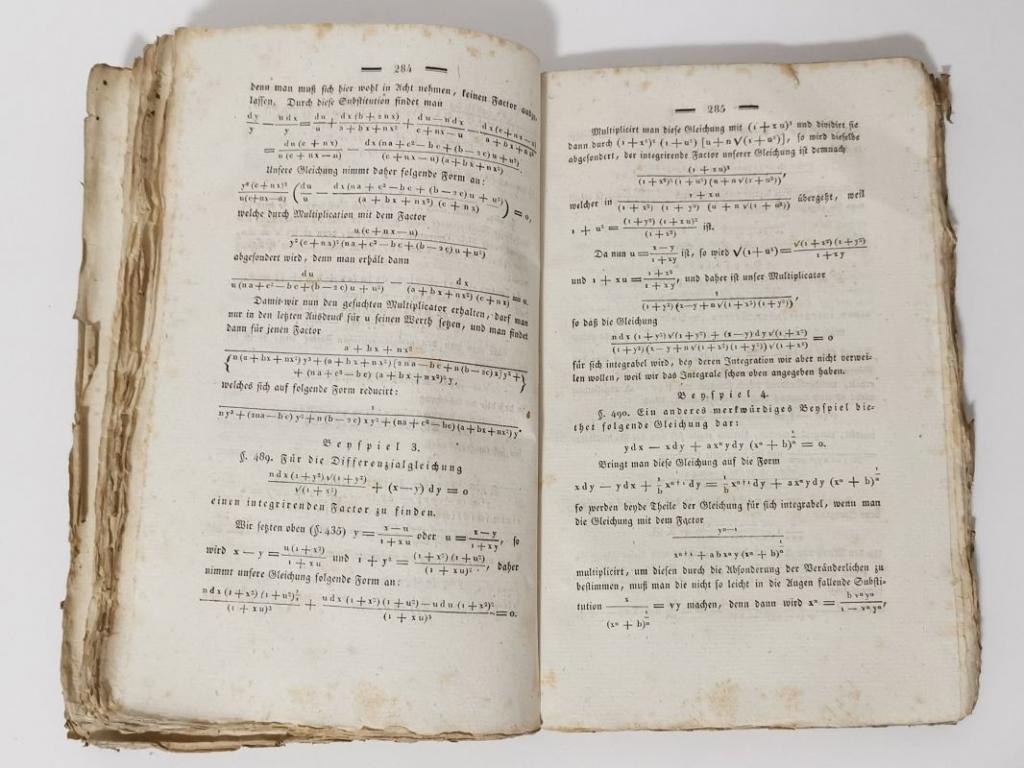 — 284 —
denn man muß sich hier wohl in Acht nehmen, keinen Factor
lassen. Durch diese Substitution findet man
dy/y − ndx/y = du/u + dx(b + 2nx)/(a + bx + nx²) + (du − ndx)/(c + nx − u) −
= du(c + nx)/(u(c + nx − u)) − dx(na + c² − bc + (b − 2c)u + u²)/((c + nx − u)(a + bx + nx²))
Unsere Gleichung nimmt daher folgende Form an:
y³(c + nx)²/(u(c + nx − u)) (du/u − dx(na + c² − bc + (b − 2c)u + u²)/((a + bx + nx²)(c + nx))) = 0,
welche durch Multiplication mit dem Factor
u(c + nx − u)/(y³(c + nx)²(na + c² − bc + (b − 2c)u + u²))
abgesondert wird, denn man erhält dann
du/(u(na + c² − bc + (b − 2c)u + u²)) − dx/((a + bx + nx²)(c + nx)) = 0.
Damit wir nun den gesuchten Multiplicator erhalten, darf man
nur in den letzten Ausdruck für u seinen Werth setzen, und man findet
dann für jenen Factor
a + bx + nx²
{n(a + bx + nx²)y³ + (a + bx + nx²)[2na − bc + n(b − 2c)x]y² +}
+ (na + c² − bc)(a + bx + nx²)²y,
welches sich auf folgende Form reducirt:
1/(ny³ + (2na − bc)y² + n(b − 2c)xy² + (na + c² − bc)(a + bx + nx²)y)
Beyspiel 3.
§. 489. Für die Differenzialgleichung
ndx(1 + y²)√(1 + y²)/√(1 + x²) + (x − y)dy = 0
einen integrirenden Factor zu finden.
Wir setzten oben (§. 435) y = (x − u)/(1 + xu) oder u = (x − y)/(1 + xy), so
wird x − y = u(1 + x²)/(1 + xu) und 1 + y² = (1 + x²)(1 + u²)/(1 + xu)², daher
nimmt unsre Gleichung folgende Form an:
ndx(1 + x²)(1 + u²)^(3/2)/(1 + xu)³ + (udx(1 + x²)(1 + u²) − udu(1 + x²)²)/(1 + xu)³ = 0.
— 285 —
Multiplicirt man diese Gleichung mit (1 + xu)³ und dividirt sie
dann durch (1 + x²)²(1 + u²)[u + n√(1 + u²)], so wird dieselbe
abgesondert, der integrirende Factor unserer Gleichung ist demnach
(1 + xu)³/((1 + x²)²(1 + u²)(u + n√(1 + u²))),
welcher in (1 + xu)/((1 + x²)(1 + y²)(u + n√(1 + u²))) übergeht, weil
1 + u² = (1 + y²)(1 + xu)²/(1 + x²) ist.
Da nun u = (x − y)/(1 + xy) ist, so wird √(1 + u²) = √(1 + x²)(1 + y²)/(1 + xy)
und 1 + xu = (1 + x²)/(1 + xy), und daher ist unser Multiplicator
1/((1 + y²)(x − y + n√(1 + x²)(1 + y²))),
so daß die Gleichung
(ndx(1 + y²)√(1 + y²) + (x − y)dy√(1 + x²))/((1 + y²)(x − y + n√(1 + x²)(1 + y²))√(1 + x²)) = 0
für sich integrabel wird, bey deren Integration wir aber nicht verwei-
len wollen, weil wir das Integrale schon oben angegeben haben.
Beyspiel 4.
§. 490. Ein anderes merkwürdiges Beyspiel bie-
thet folgende Gleichung dar:
ydx − xdy + axⁿydy(xⁿ + b)^(1/n) = 0.
Bringt man diese Gleichung auf die Form
xdy − ydx + (1/b)xⁿ⁺¹dy = (1/b)xⁿ⁺¹dy + axⁿydy(xⁿ + b)^(1/n)
so werden beyde Theile der Gleichung für sich integrabel, wenn man
die Gleichung mit dem Factor
yⁿ⁻¹/(xⁿ⁺¹ + abxⁿy(xⁿ + b)^(1/n))
multiplicirt, um diesen durch die Absonderung der Veränderlichen zu
bestimmen, muß man die nicht so leicht in die Augen fallende Substi-
tution x/(xⁿ + b)^(1/n) = vy machen, denn dann wird xⁿ = bvⁿyⁿ/(1 − vⁿyⁿ),